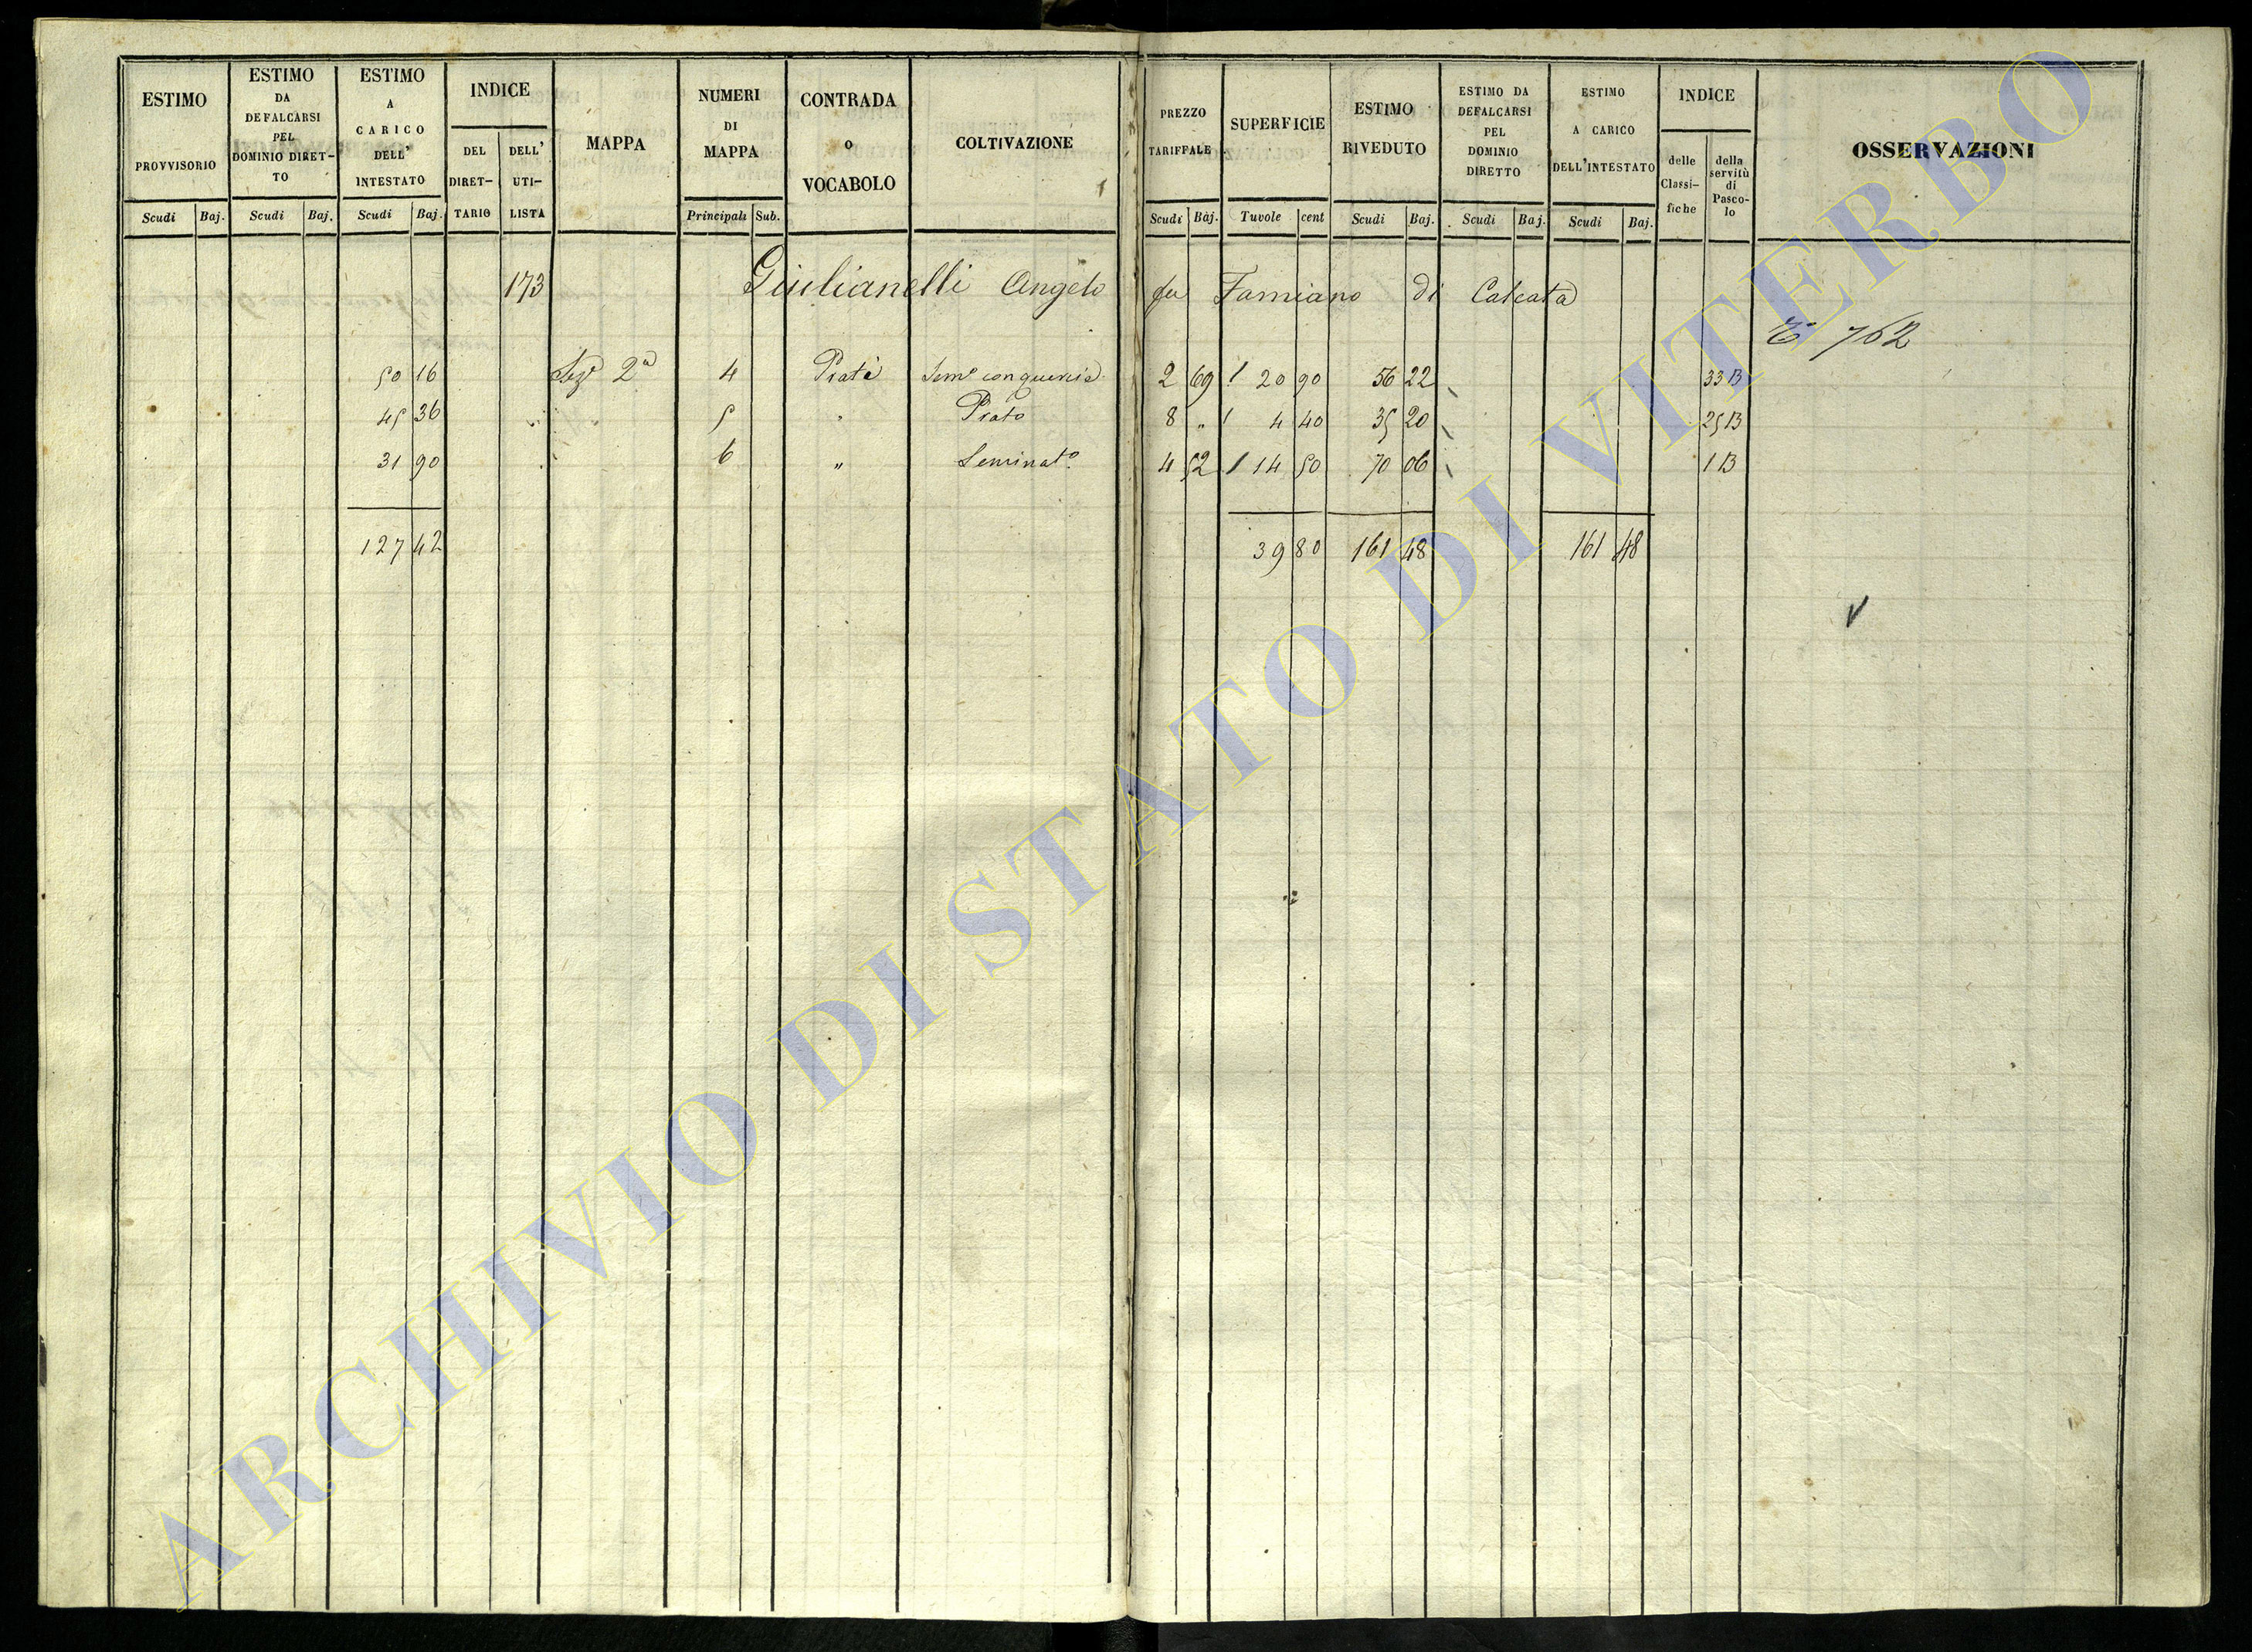 ESTIMO PROVVISORIO
Scudi Baj.
ESTIMO DA DEFALCARSI PEL DOMINIO DIRETTO
Scudi Baj.
ESTIMO A CARICO DELL' INTESTATO
Scudi Baj.
INDICE
DEL DIRETTARIO
DELL' UTILISTA
MAPPA
NUMERI DI MAPPA
Principali Sub.
CONTRADA O VOCABOLO
COLTIVAZIONE
PREZZO TARIFFALE
Scudi Baj.
SUPERFICIE
Tavole cent
ESTIMO RIVEDUTO
Scudi Baj.
ESTIMO DA DEFALCARSI PEL DOMINIO DIRETTO
Scudi Baj.
ESTIMO A CARICO DELL'INTESTATO
Scudi Baj.
INDICE
delle Classifiche
della servitù di Pascolo
OSSERVAZIONI
173 Giulianelli Angelo fu Famiano di Calcata
E 762
50 16 Sez.e 2a 4 Prati Sem.o con quercie 2 69 20 90 56 22 33 B
45 36 5 " Prato 8 " 4 40 35 20 25 B
31 90 6 " Seminat.o 4 52 14 50 70 06 1 B
127 42 39 80 161 48 161 48
ARCHIVIO DI STATO DI VITERBO